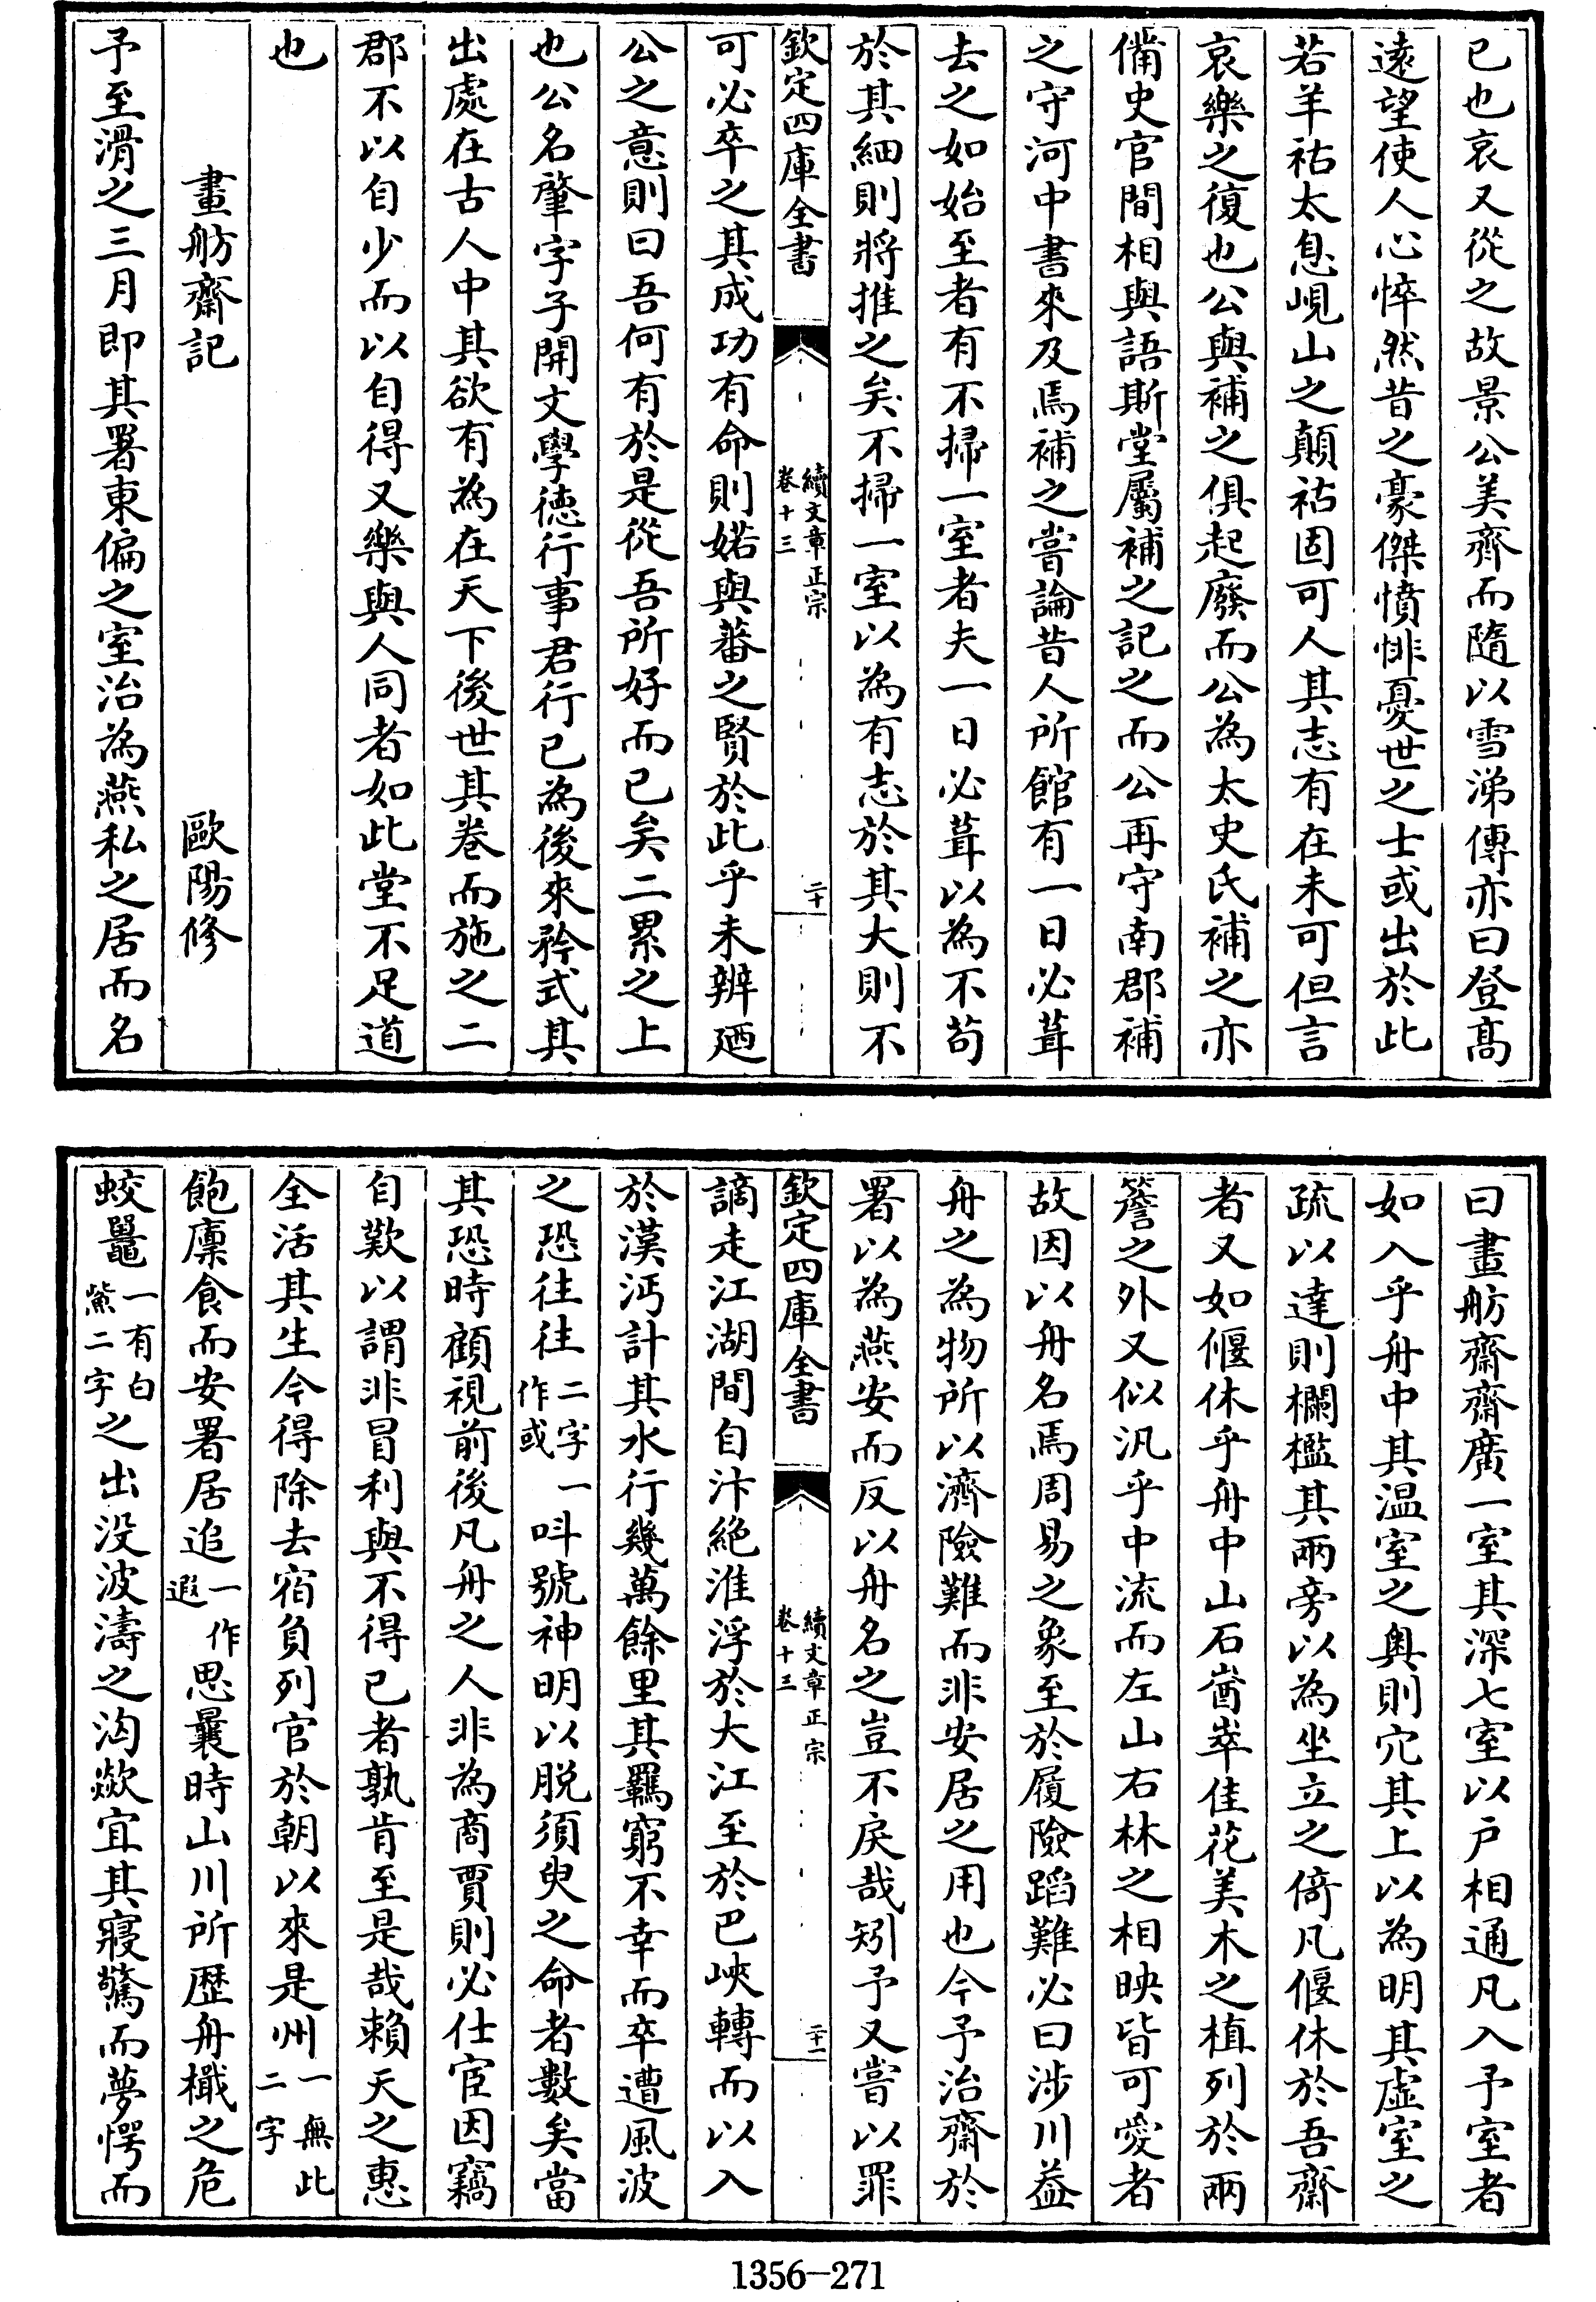 已也哀又從之故景公美齊而隨以雪涕傳亦曰登髙
遠望使人心悴然昔之豪傑憤悱憂世之士或出於此
若羊祜太息峴山之顛祜固可人其志有在未可但言
哀樂之復也公與補之俱起廢而公為太史氏補之亦
備史官間相與語斯堂屬補之記之而公再守南郡補
之守河中書來及焉補之嘗論昔人所館有一日必葺
去之如始至者有不掃一室者夫一日必葺以為不苟
於其細則將推之矣不掃一室以為有志於其大則不
欽定四庫全書 續文章正宗 卷十三 二十
可必卒之其成功有命則婼與蕃之賢於此乎未辨廼
公之意則曰吾何有於是從吾所好而已矣二累之上
也公名肇字子開文學徳行事君行已為後來矜式其
出處在古人中其欲有為在天下後世其卷而施之二
郡不以自少而以自得又樂與人同者如此堂不足道
也
畫舫齋記 歐陽修
予至滑之三月即其署東偏之室治為燕私之居而名
曰畫舫齋齋廣一室其深七室以戸相通凡入予室者
如入乎舟中其温室之奥則穴其上以為明其虛室之
疏以達則欄檻其兩旁以為坐立之倚凡偃休於吾齋
者又如偃休乎舟中山石崷崒佳花美木之植列於兩
簷之外又似汎乎中流而左山右林之相映皆可愛者
故因以舟名焉周易之象至於履險蹈難必曰涉川葢
舟之為物所以濟險難而非安居之用也今予治齋於
署以為燕安而反以舟名之豈不戾哉矧予又嘗以罪
欽定四庫全書 續文章正宗 卷十三 二十一
謫走江湖間自汴絶淮浮於大江至於巴峽轉而以入
於漢沔計其水行幾萬餘里其羈窮不幸而卒遭風波
之恐往往二字一作或叫號神明以脱須臾之命者數矣當
其恐時顧視前後凡舟之人非為商賈則必仕宦因竊
自歎以謂非冒利與不得已者孰肯至是哉賴天之惠
全活其生今得除去宿負列官於朝以來是州一無此二字
飽廩食而安署居追一作遐思曩時山川所歴舟檝之危
蛟鼉一有白黿二字之出没波濤之洶歘宜其寢驚而夢愕而
1356—271